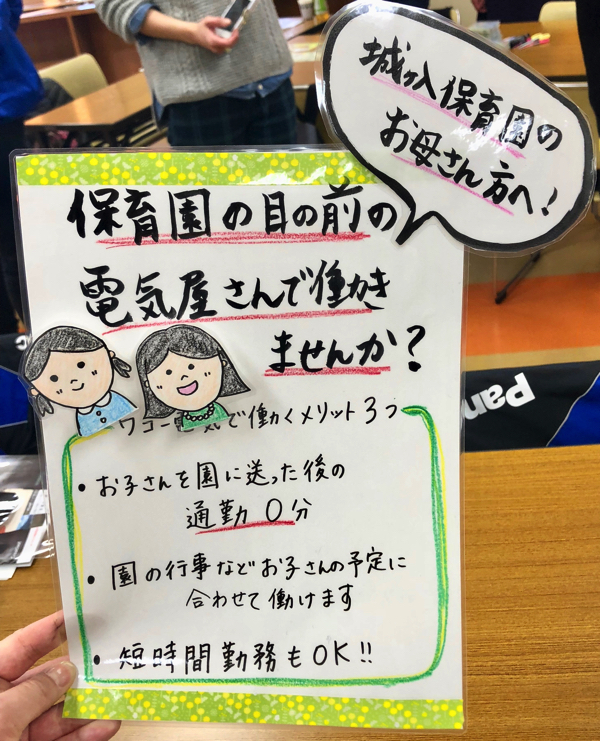 城ヶ入保育園の
お母さん方へ!
保育園の目の前の
電気屋さんで働き
ませんか?
ワコー電気で働くメリット3つ
• お子さんを園に送った後の
通勤0分
• 園の行事などお子さんの予定に
合わせて働けます
• 短時間勤務もOK!!
Pan